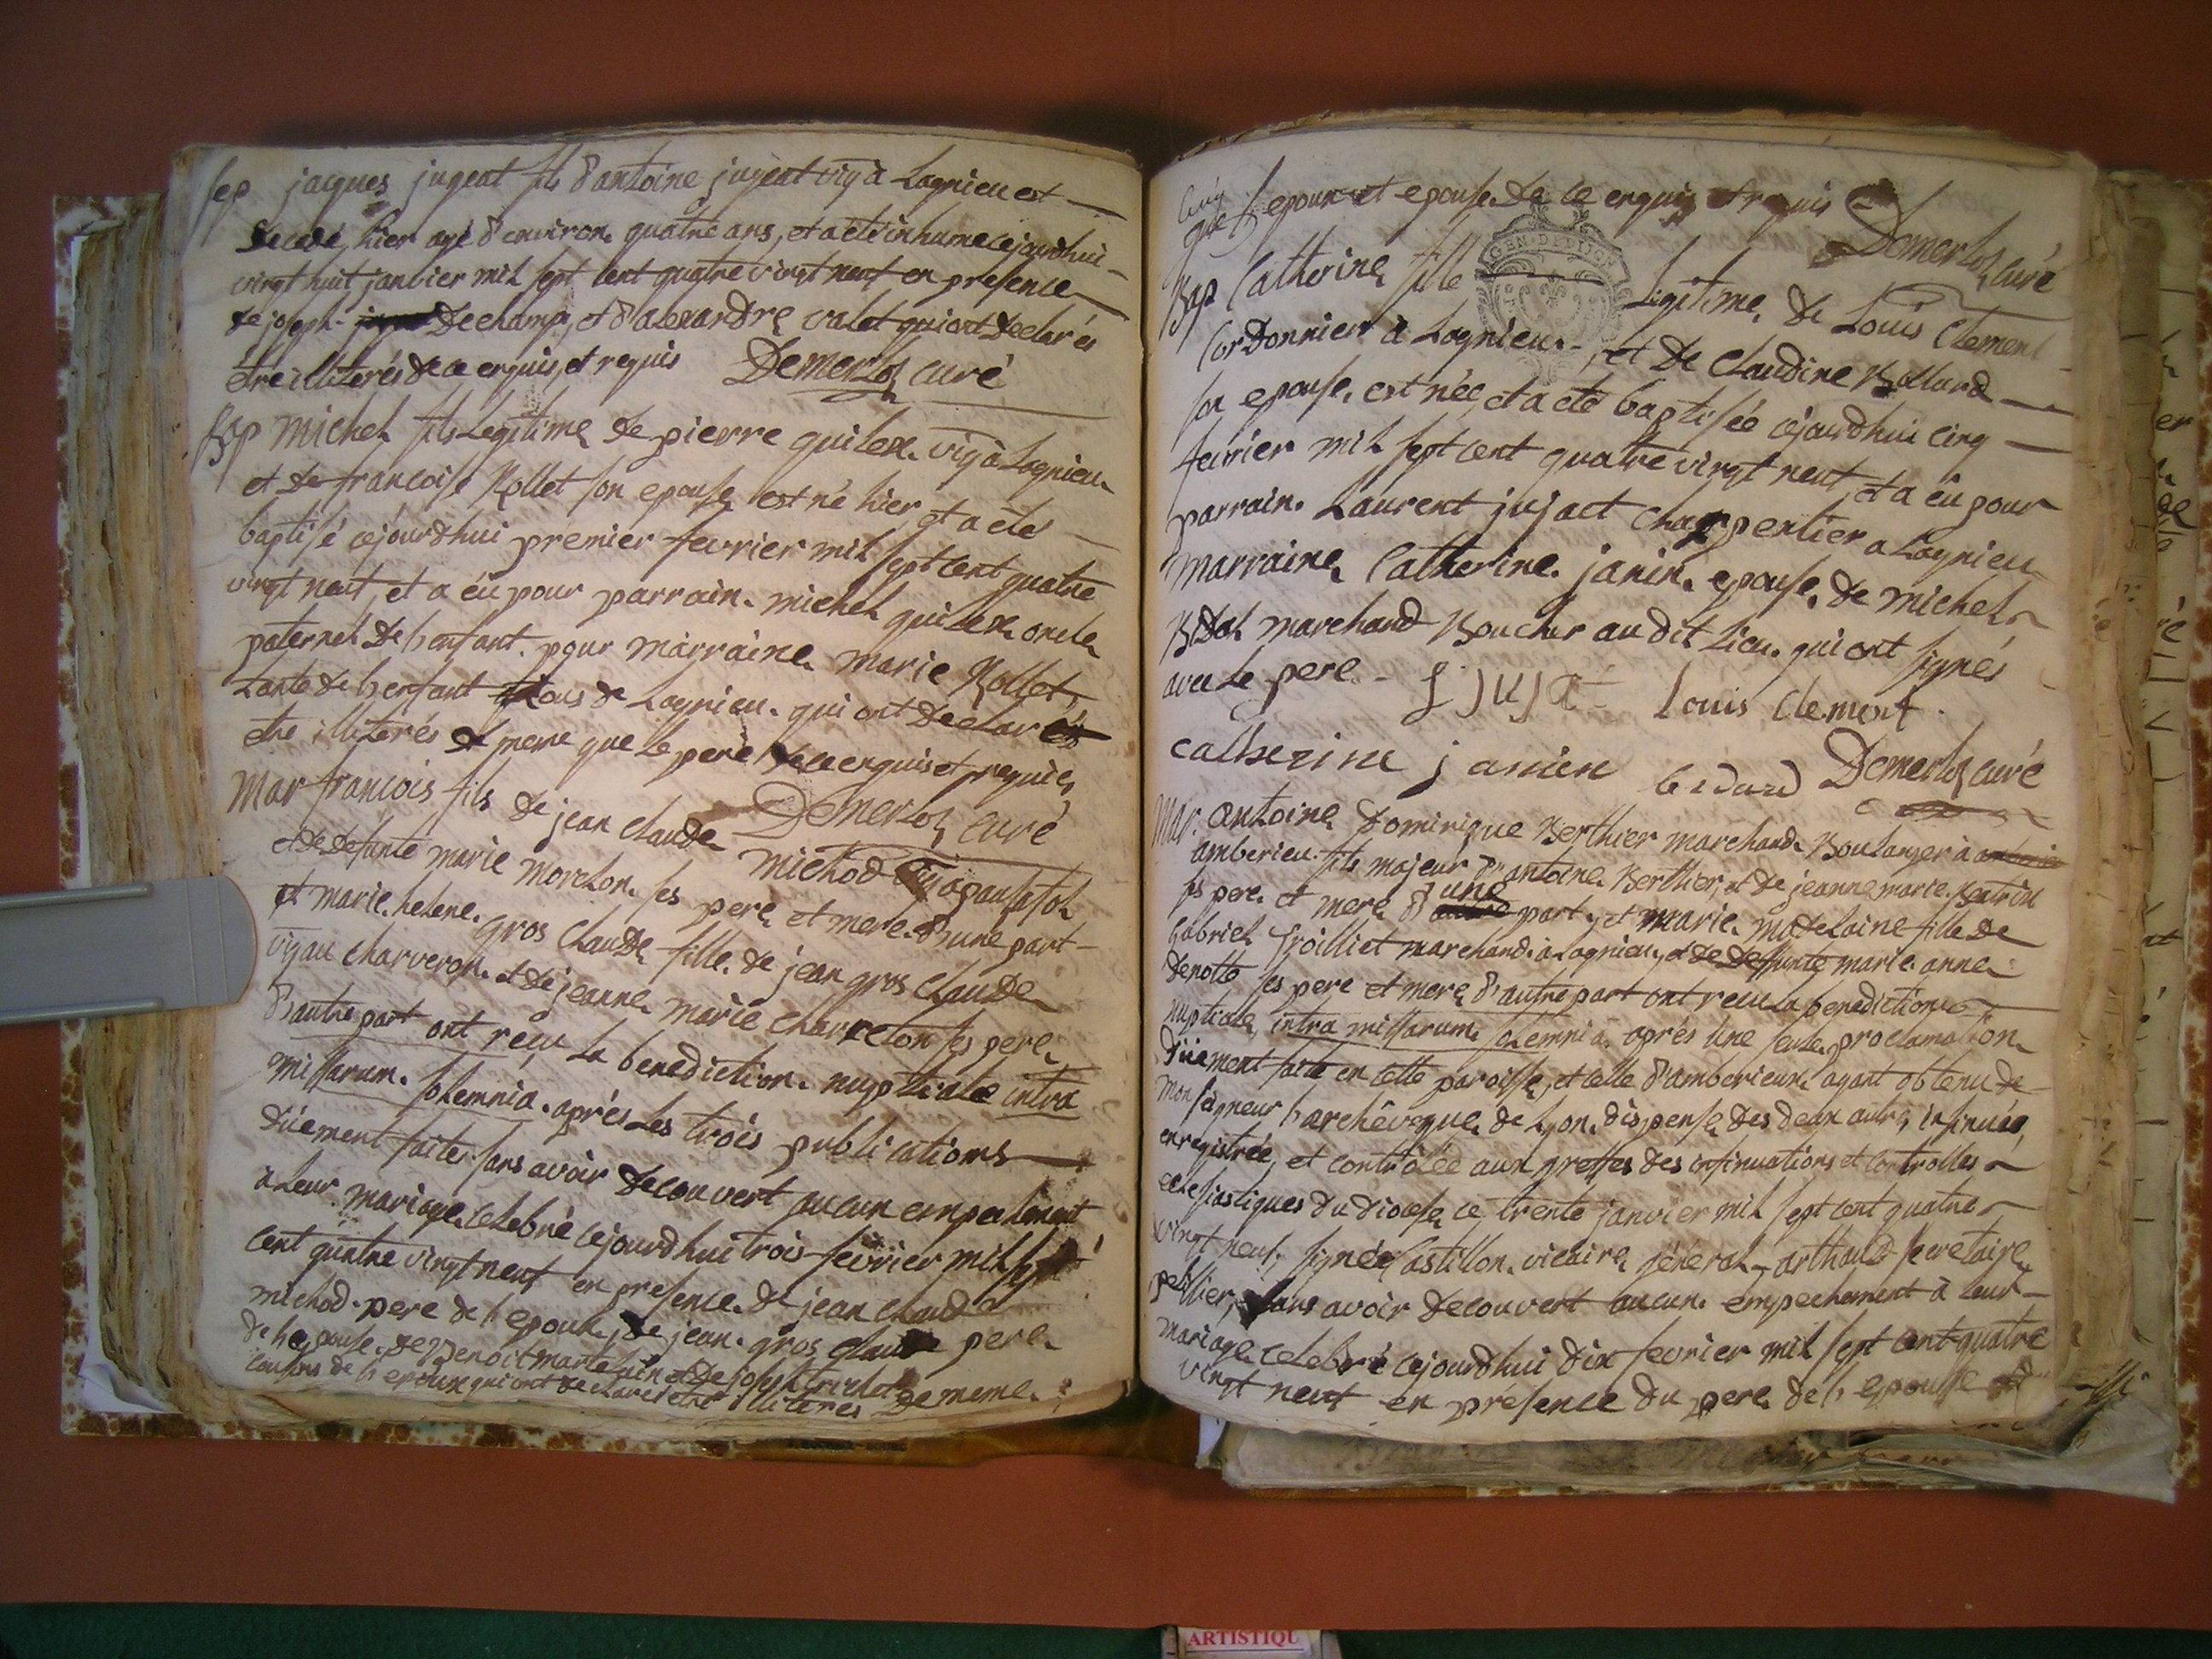 sep jacques jugeat fils d'antoine jugeat vig à Lagnieu est
decedé hier agé d'environ quatre ans, et a eté inhumé cejourdhui
vingt huit janvier mil sept cent quatre vingt neuf en presence
de joseph Dechamp, et d'alexandre valet qui ont declarés
étre illiterés de ce enquis, et requis Demerloz curé
Bap michel fils Legitime de pierre quilex vig à Lagnieu
et de francoise Rollet son epouse est né hier et a eté
baptisé cejourdhui premier fevrier mil sept cent quatre
vingt neuf, et a éu pour parrain michel quilex oncle
paternel de l'enfant pour marraine marie Rollet,
tante de l'enfant tous de Lagnieu qui ont declarés
etre illiterés de meme que le pere de ce enquis et requis
Demerloz curé
Mar francois fils de jean claude michod vig à
et de defunte marie morelon ses pere et mere d'une part
et marie helene gros claude fille de jean gros claude
vig au charveron et de jeanne marie charreton ses pere
d'autre part ont reçu la benediction nuptiale intra
missarum solemnia après les trois publications
düement faites sans avoir decouvert aucun empechement
a leur mariage celebré cejourdhui trois fevrier mil sept
cent quatre vingt neuf en presence de jean claude
michod pere de l'epoux, de jean gros claude pere
de l'epouse de Benoit martelin et de joseph
cousins de l'epoux qui ont declarés etre illiteres de meme
que l'epoux et epouse de ce enquis et requis
Demerloz curé
Bap Catherine fille Legitime de Louis Clement
Cordonnier à Lagnieu, et de claudine Ballard
son epouse, est née, et a eté baptisée cejourdhui cinq
fevrier mil sept cent quatre vingt neuf, et a éu pour
parrain Laurent jujact charpentier a Lagnieu
marraine Catherine janin epouse de michel
marchand Boucher au dit lieu qui ont signés
avec le pere - Louis clement
catherine janien bedard Demerloz curé
Mar. antoine Dominique Berthier marchand Boulanger à
amberieu fils majeur d'antoine Berthier, et de jeanne marie
ses pere et mere d'une part, et marie madelaine fille de
Gabriel froilliet marchand à Lagnieu, et de deffunte marie anne
denotte ses pere et mere d'autre part ont recu la benediction
nuptiale intra missarum solemnia après une seule proclamation
düement faite en cette paroisse, et celle d'amberieu ayant obtenu de
Monseigneur l'archêveque de Lyon dispense des deux autres insinuée,
enregistrée, et contrôlée aux greffes des insinuations et controlles
eclesiastiques du diocese ce trente janvier mil sept cent quatre
vingt neuf, signée Castillon vicaire géneral arthaud secretaire
sans avoir decouvert aucun empechement à leur
mariage celebré cejourdhui dix fevrier mil sept cent quatre
vingt neuf en presence du pere de l'epouse
GEN. DE DIJON
ARTISTIQU